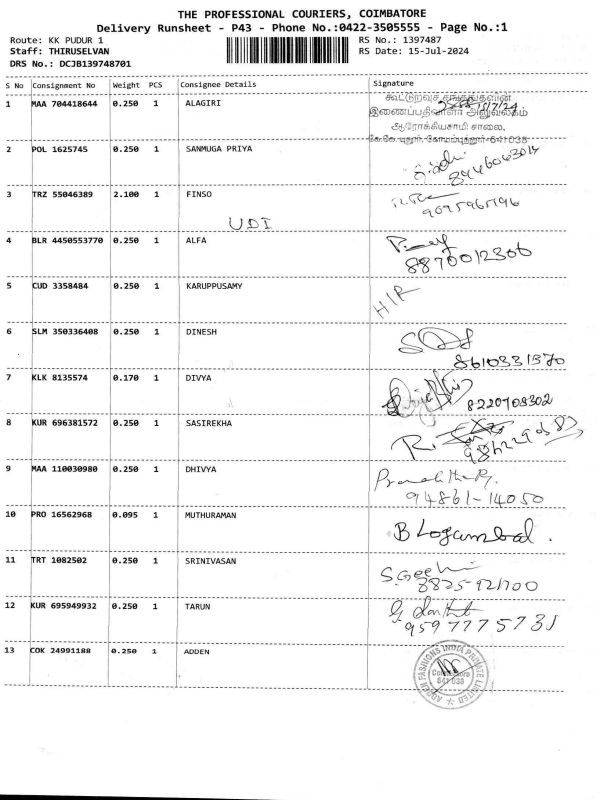 THE PROFESSIONAL COURIERS, COIMBATORE
Delivery Runsheet - P43 - Phone No.:0422-3505555 - Page No.:1
Route: KK PUDUR 1 RS No.: 1397487
Staff: THIRUSELVAN RS Date: 15-Jul-2024
DRS No.: DCJB139748701
S No Consignment No Weight PCS Consignee Details Signature
1 MAA 704418644 0.250 1 ALAGIRI
கூட்டுறவுச் சங்கங்களின்
இணைப்பதிவாளர் அலுவலகம்
15/7/24
ஆரோக்கியசாமி சாலை,
கே.கே.புதூர், கோயம்புத்தூர்-641038
2 POL 1625745 0.250 1 SANMUGA PRIYA
3 TRZ 55046389 2.100 1 FINSO
UDI
4 BLR 4450553770 0.250 1 ALFA
8870012306
5 CUD 3358484 0.250 1 KARUPPUSAMY
H/R
6 SLM 350336408 0.250 1 DINESH
8610331370
7 KLK 8135574 0.170 1 DIVYA
8220708302
8 KUR 696381572 0.250 1 SASIREKHA
9 MAA 110030980 0.250 1 DHIVYA
94861-14050
10 PRO 16562968 0.095 1 MUTHURAMAN
B Logambal.
11 TRT 1082502 0.250 1 SRINIVASAN
S.Geetha
8825-921700
12 KUR 695949932 0.250 1 TARUN
9597775731
13 COK 24991188 0.250 1 ADDEN
ADDEN FASHIONS INDIA PRIVATE LIMITED
Coimbatore
641 038